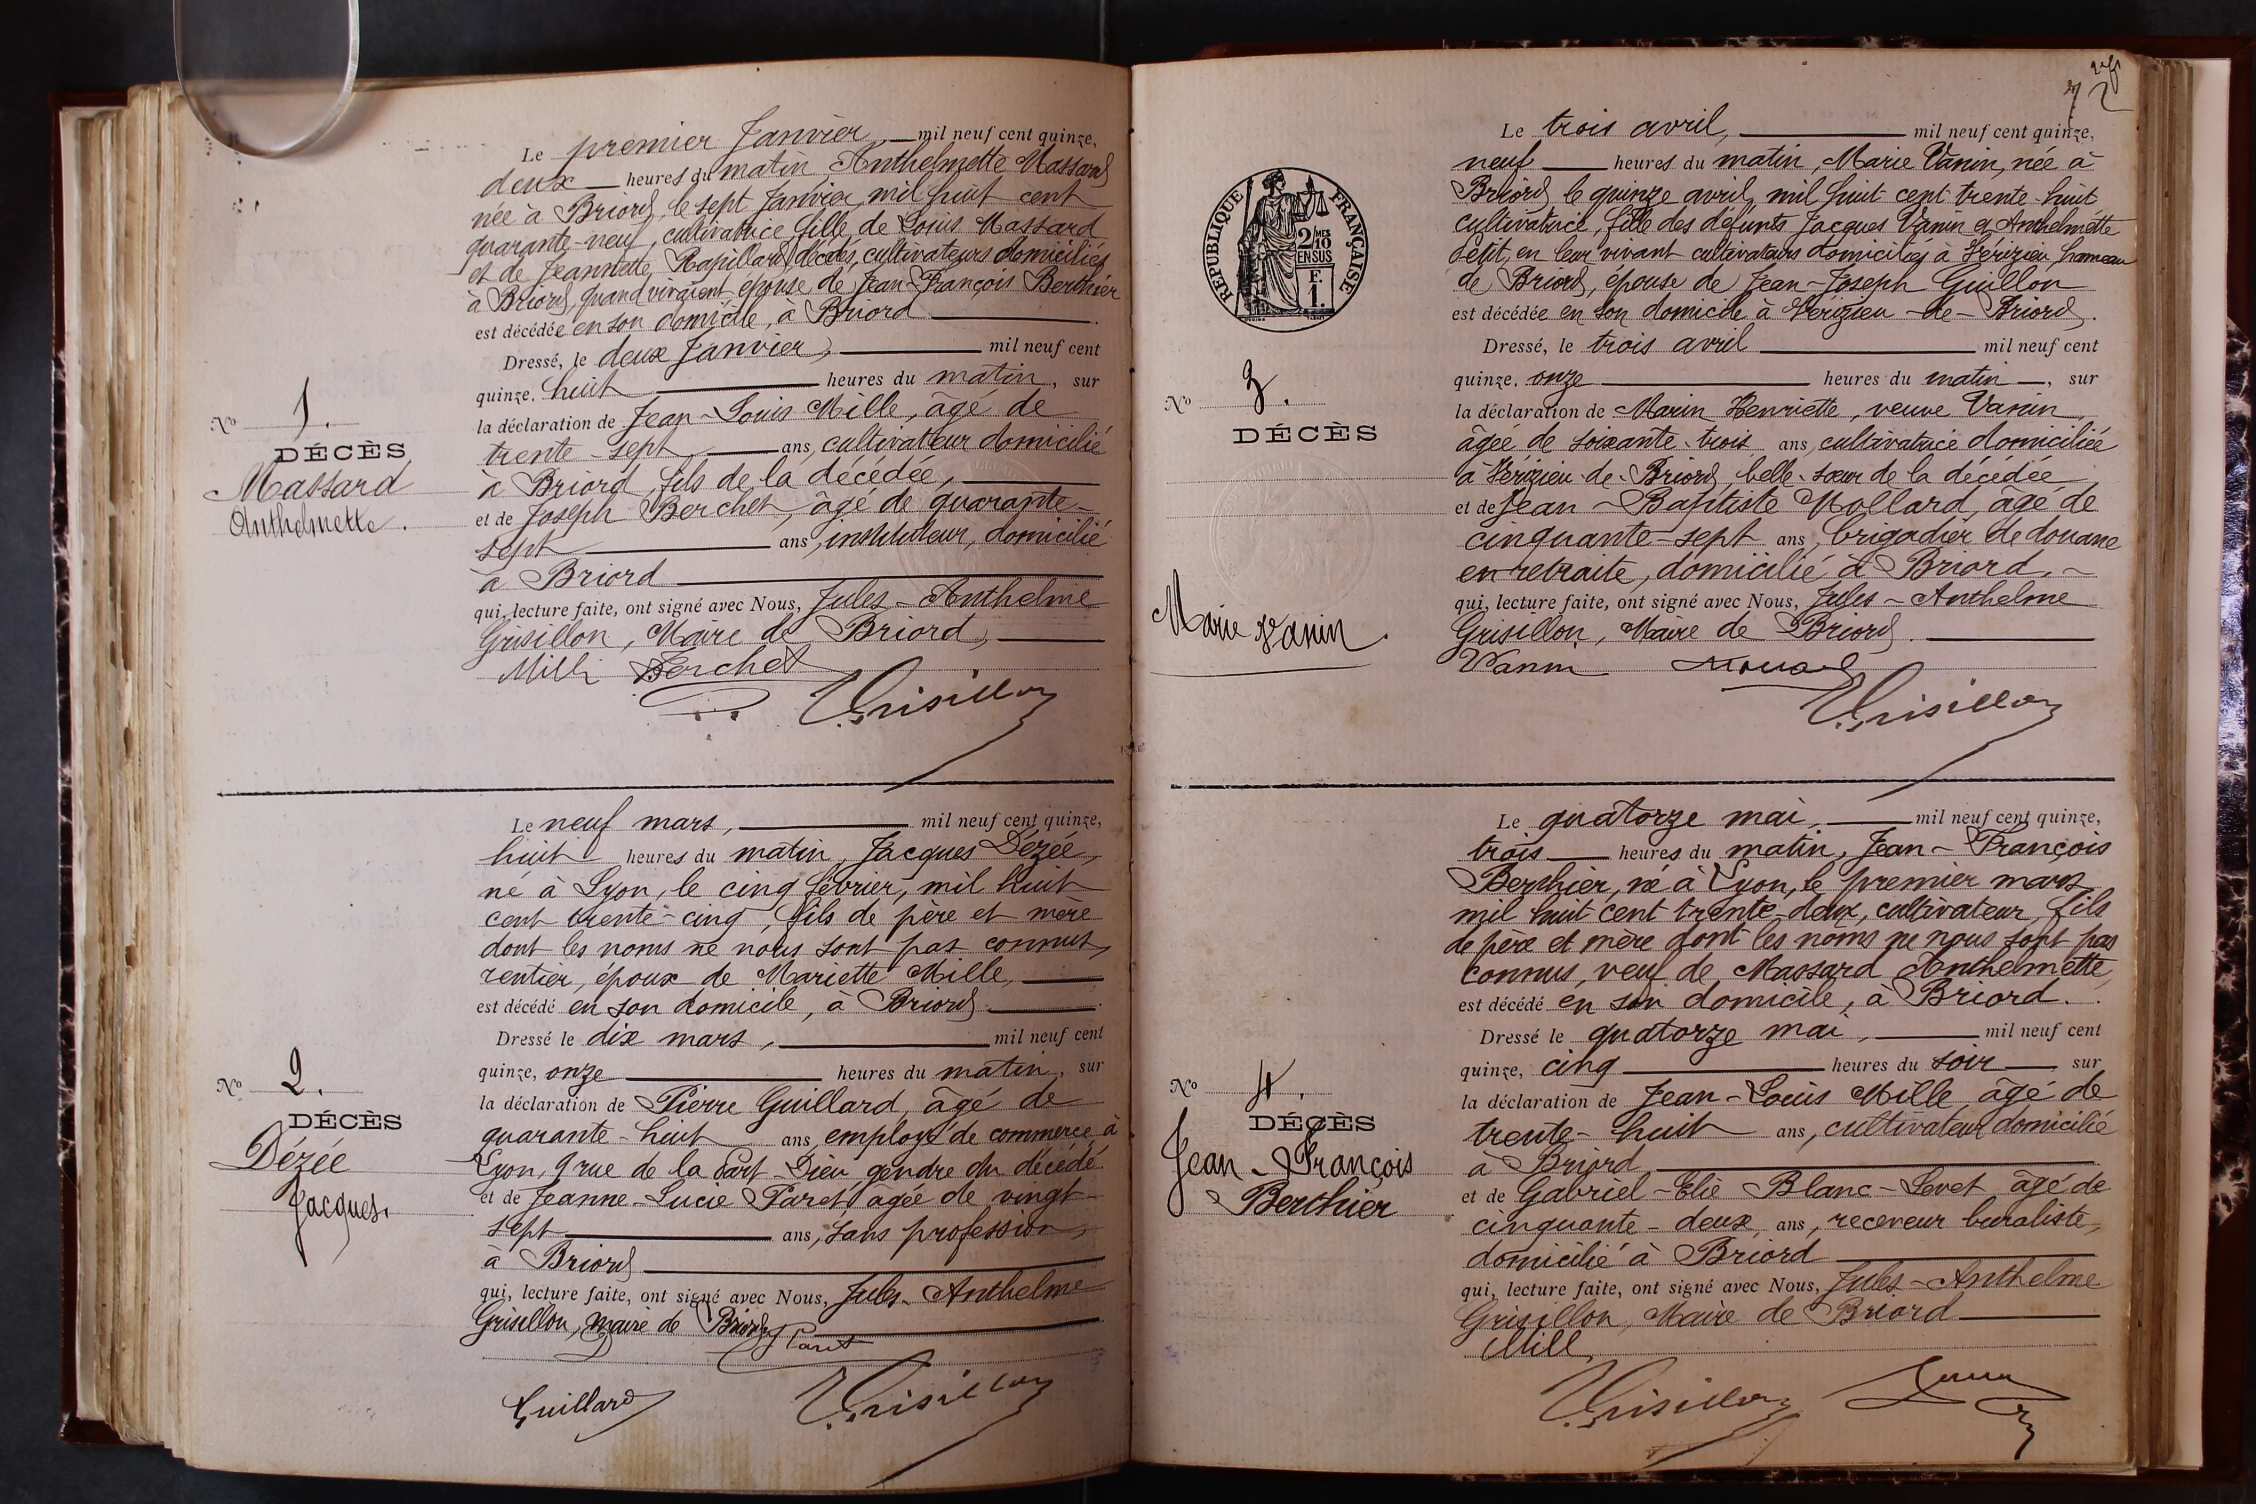 Le premier Janvier, mil neuf cent quinze,
deux heures du matin Anthelmette Massard
née à Briord, le sept Janvier mil huit cent
quarante-neuf, cultivatrice, fille de Louis Massard
et de Jeannette Rapillard décédés, cultivateurs domiciliés
à Briord, quand vivaient, épouse de Jean-François Berthier
est décédée en son domicile, à Briord.
Dressé, le deux Janvier, mil neuf cent
quinze, huit heures du matin, sur
la déclaration de Jean-Louis Mille, âgé de
trente-sept ans, cultivateur domicilié
à Briord, fils de la décédée,
et de Joseph Berchet, âgé de quarante-
sept ans, instituteur, domicilié
à Briord
qui, lecture faite, ont signé avec Nous, Jules-Anthelme
Grisillon, Maire de Briord,
Mille Berchet
Grisillon
No 1.
DÉCÈS
Massard
Anthelmette.
Le neuf mars, mil neuf cent quinze,
huit heures du matin, Jacques Dézée,
né à Lyon, le cinq février, mil huit
cent trente-cinq, fils de père et mère
dont les noms ne nous sont pas connus,
rentier, époux de Mariette Mille,
est décédé en son domicile, à Briord.
Dressé le dix mars, mil neuf cent
quinze, onze heures du matin, sur
la déclaration de Pierre Guillard, âgé de
quarante-huit ans, employé de commerce à
Lyon, 9 rue de la Part-Dieu gendre du décédé
et de Jeanne-Lucie Paret, âgée de vingt-
sept ans, sans profession,
à Briord
qui, lecture faite, ont signé avec Nous, Jules-Anthelme
Grisillon, maire de Briord, Paret
Guillard Grisillon
No 2.
DÉCÈS
Dézée
Jacques.
72
Le trois avril, mil neuf cent quinze,
neuf heures du matin, Marie Vanin, née à
Briord, le quinze avril, mil huit cent trente-huit
cultivatrice, fille des défunts Jacques Vanin & Anthelmette
Petit, en leur vivant cultivateurs domiciliés à Vérizieu, hameau
de Briord, épouse de Jean-Joseph Guillon
est décédée en son domicile à Vérizieu-de-Briord.
Dressé, le trois avril mil neuf cent
quinze, onze heures du matin, sur
la déclaration de Marin Henriette, veuve Vanin,
âgée de soixante-trois ans, cultivatrice domiciliée
à Vérizieu-de-Briord, belle-sœur de la décédée
et de Jean-Baptiste Mollard, âgé de
cinquante-sept ans, brigadier de douane
en retraite, domicilié à Briord,
qui, lecture faite, ont signé avec Nous, Jules-Anthelme
Grisillon, Maire de Briord.
Vanin Mollard
Grisillon
RÉPUBLIQUE FRANÇAISE
2 MES
10
EN SUS
F.
1.
No 3.
DÉCÈS
Marie Vanin.
Le quatorze mai, mil neuf cent quinze,
trois heures du matin, Jean-François
Berthier, né à Lyon, le premier mars
mil huit cent trente-deux, cultivateur, fils
de père et mère dont les noms ne nous sont pas
connus, veuf de Massard Anthelmette,
est décédé en son domicile, à Briord.
Dressé le quatorze mai, mil neuf cent
quinze, cinq heures du soir sur
la déclaration de Jean-Louis Mille âgé de
trente-huit ans, cultivateur domicilié
à Briord
et de Gabriel-Elie Blanc-Levet âgé de
cinquante-deux ans, receveur buraliste,
domicilié à Briord
qui, lecture faite, ont signé avec Nous, Jules-Anthelme
Grisillon, Maire de Briord
Mille
Grisillon
No 4.
DÉCÈS
Jean-François
Berthier